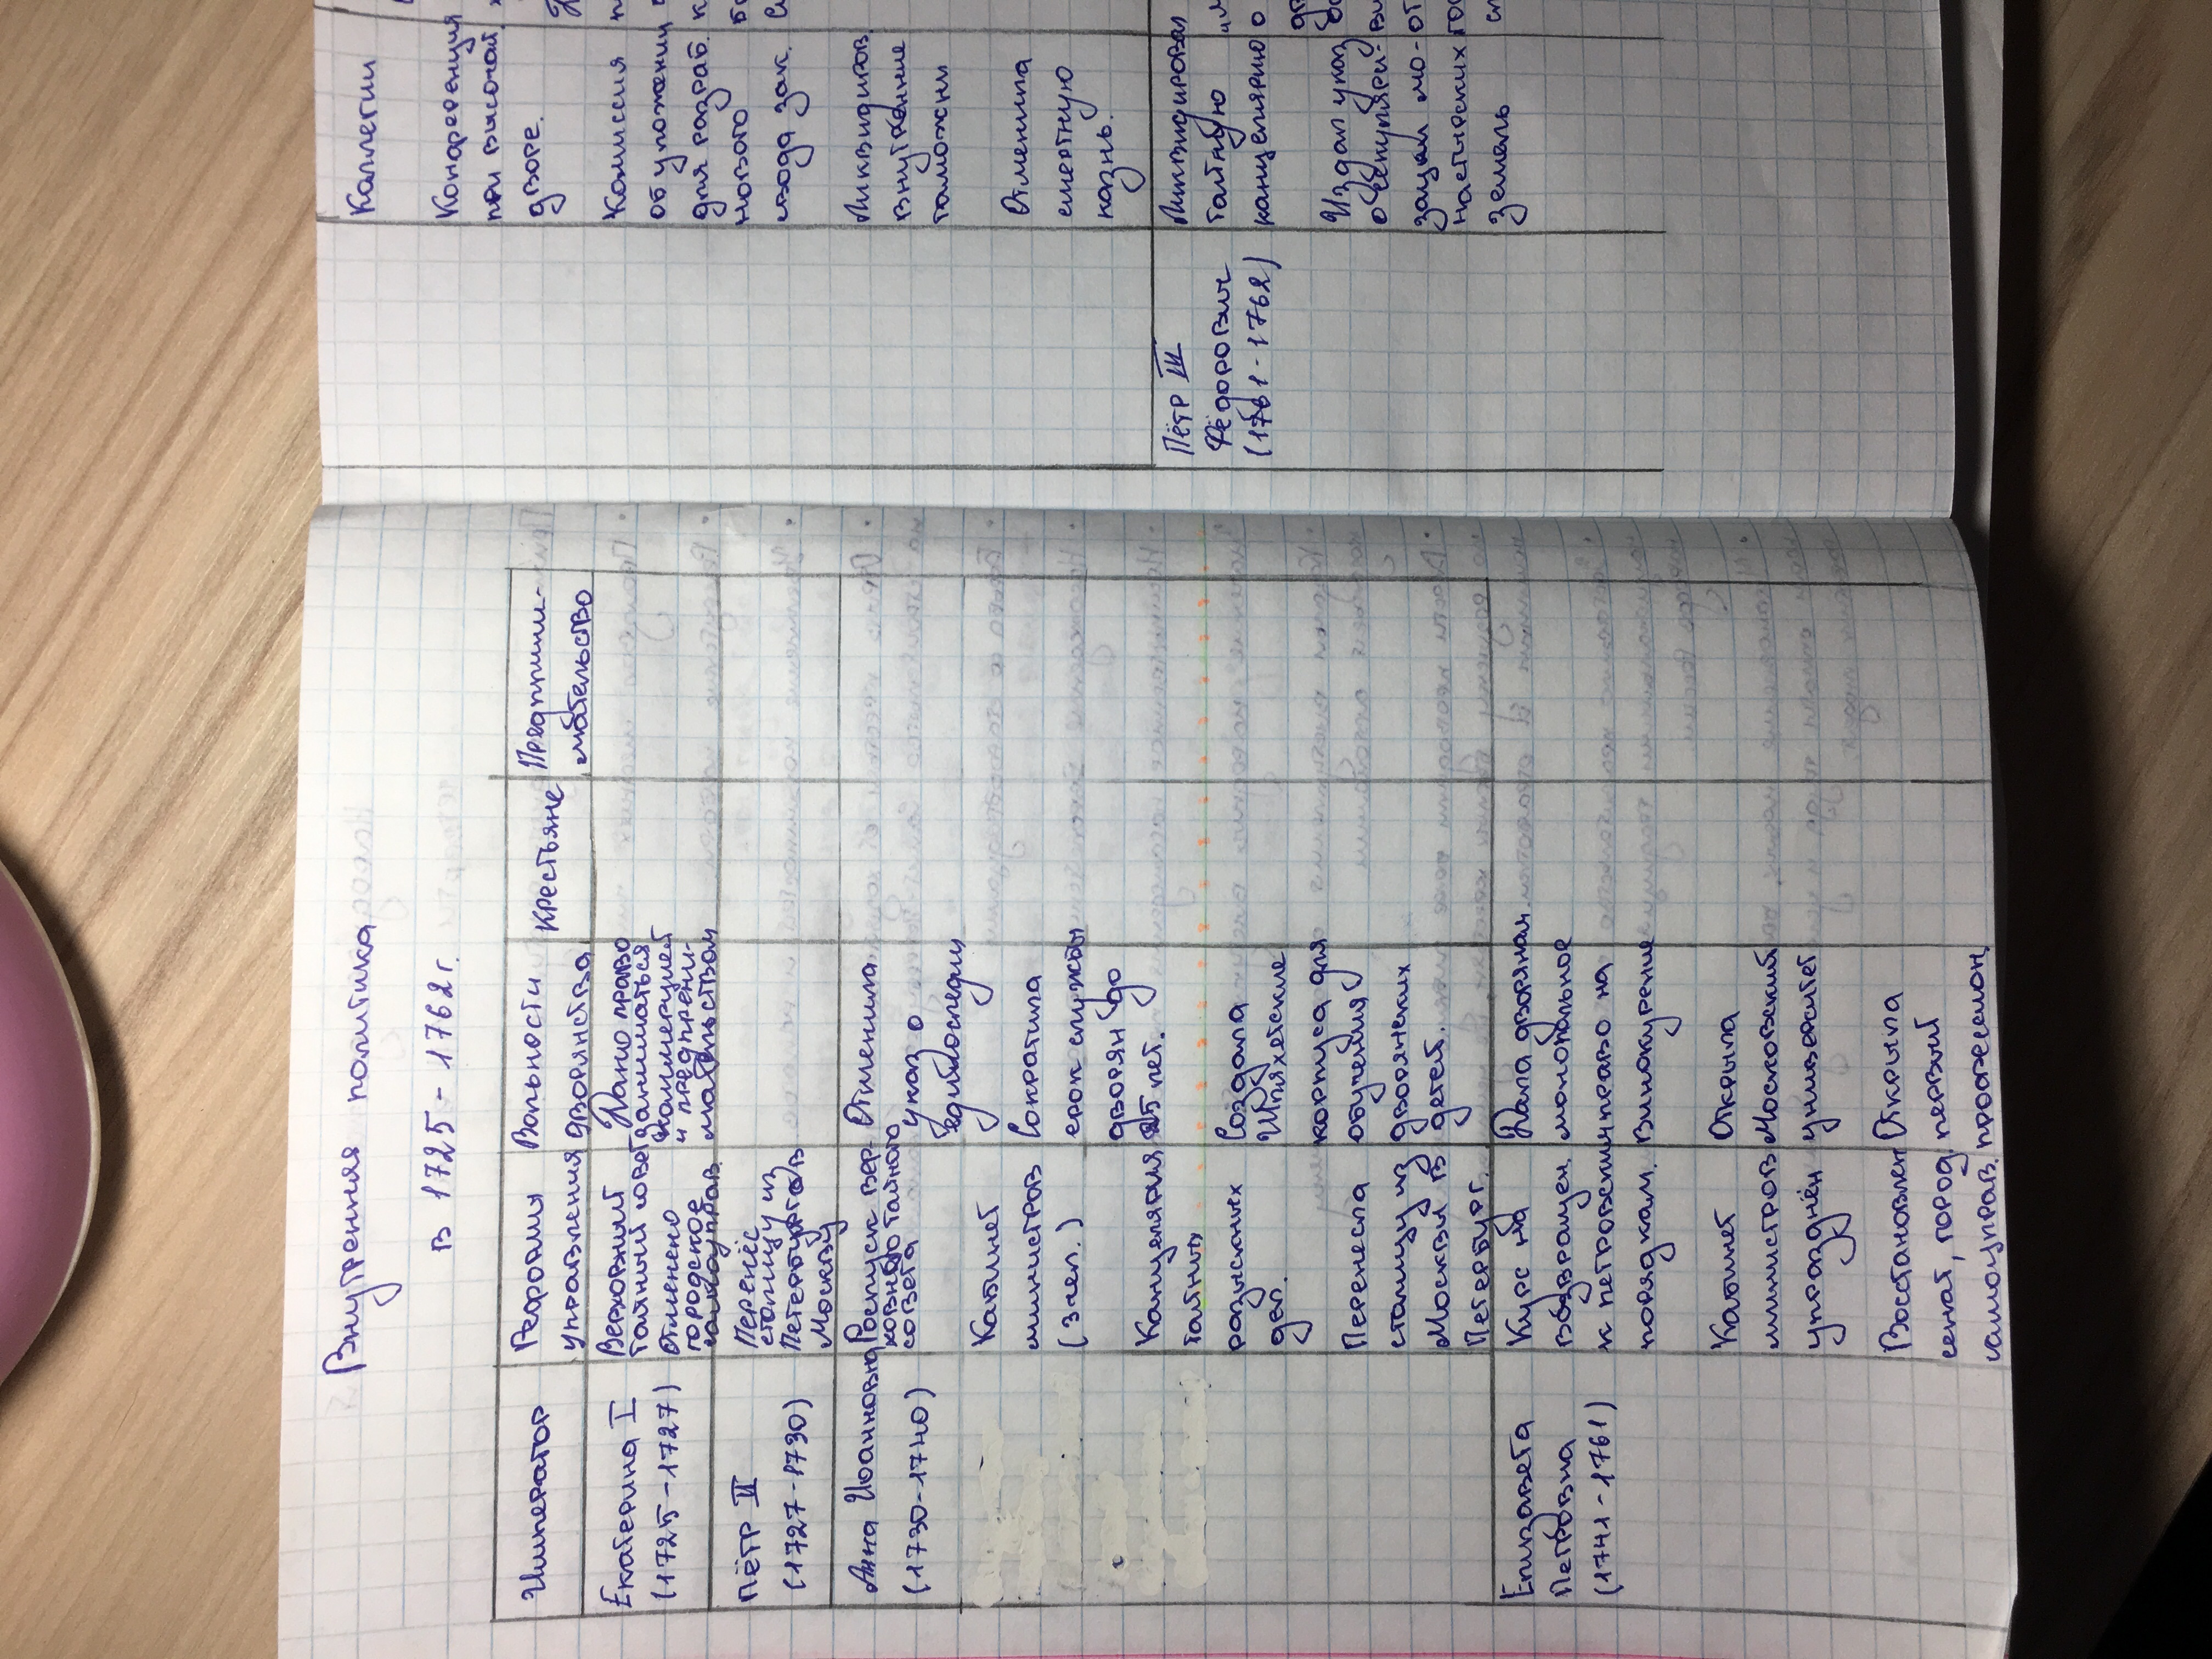 Внутренняя политика
в 1725 - 1762 г.
Император
Реформы
управления
Вольности
дворянства
Крестьяне
Предприни-
мательство
Екатерина I
(1725 - 1727)
Верховный
тайный совет
Отменено
городское
самоуправ.
Дано право
заниматься
коммерцией
и предприни-
мательством
Пётр II
(1727 - 1730)
Перенёс
столицу из
Петербурга в
Москву
Анна Иоанновна
(1730-1740)
Роспуск вер-
ховного тайного
совета
Кабинет
министров
(3 чел.)
Канцелярия
тайных
разыскных
дел.
Перенесла
столицу из
Москвы в
Петербург.
Отменила
указ о
единонаследии
Сократила
срок службы
дворян до
25 лет.
Создала
Шляхетские
корпуса для
обучения
дворянских
детей.
Елизавета
Петровна
(1741 - 1761)
Курс на
возвращен.
к петровским
порядкам.
Кабинет
министров
упразднён
Восстановлен
сенат, город.
самоуправ.
Дала дворянам
монопольное
право на
винокурение
Открыла
Московский
университет
Открыла
первый
профессион.
Коллегии
Конференция
при высочай.
дворе.
Комиссия
об уложении
для разраб.
нового
свода зак.
Ликвидиров.
внутренние
таможни
Отменила
смертную
казнь.
Пётр III
Фёдорович
(1761 - 1762)
Ликвидировал
тайную
канцелярию
Издал указ
о секуляри-
зации мо-
настырских
земель